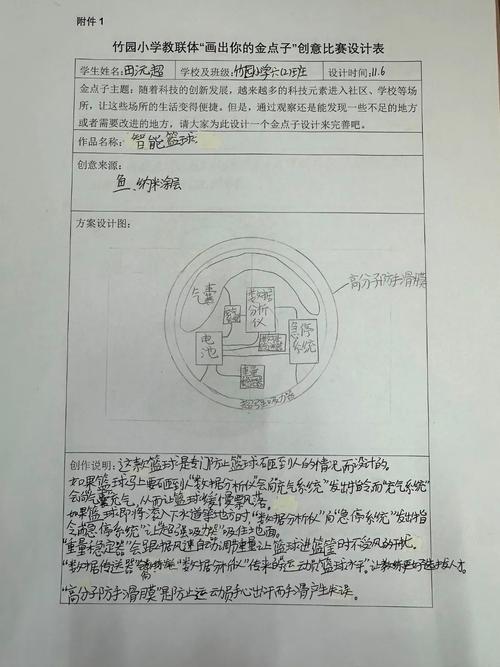 附件 1
竹园小学教联体“画出你的金点子”创意比赛设计表
学生姓名: 田沅超 学校及班级: 竹园小学六(2)班 设计时间: 11.6
金点子主题: 随着科技的创新发展，越来越多的科技元素进入社区、学校等场
所，让这些场所的生活变得便捷。但是，通过观察还是能发现一些不足的地方
或者需要改进的地方，请大家为此设计一个金点子设计来完善吧。
作品名称: 智能篮球
创意来源:
鱼、纳米涂层
方案设计图:
高分子防手滑膜
气囊
数据分析仪
电池
急停系统
重量
超强吸力器
创作说明: 这款篮球是专门防止篮球砸到人的情况而设计的。
如果篮球马上要砸到人“数据分析仪”会向“充气系统”发出指令而“充气系统”
会给气囊充气。从而让篮球缓慢飘落。
如果篮球即将滚入下水道等地方时“数据分析仪”向“急停系统”发出指
令而急停系统”让“超强吸力器”吸住地面。
“重量稳定器”会跟据风速自动调节重量让篮球进篮筐时不受风的干扰。
“数据传送器”
“数据分析仪”传来的“运动员篮球水平”。让教练更好选拔人才。
“高分子防手滑膜”是防止运动员手心出汗而手滑产生失误。